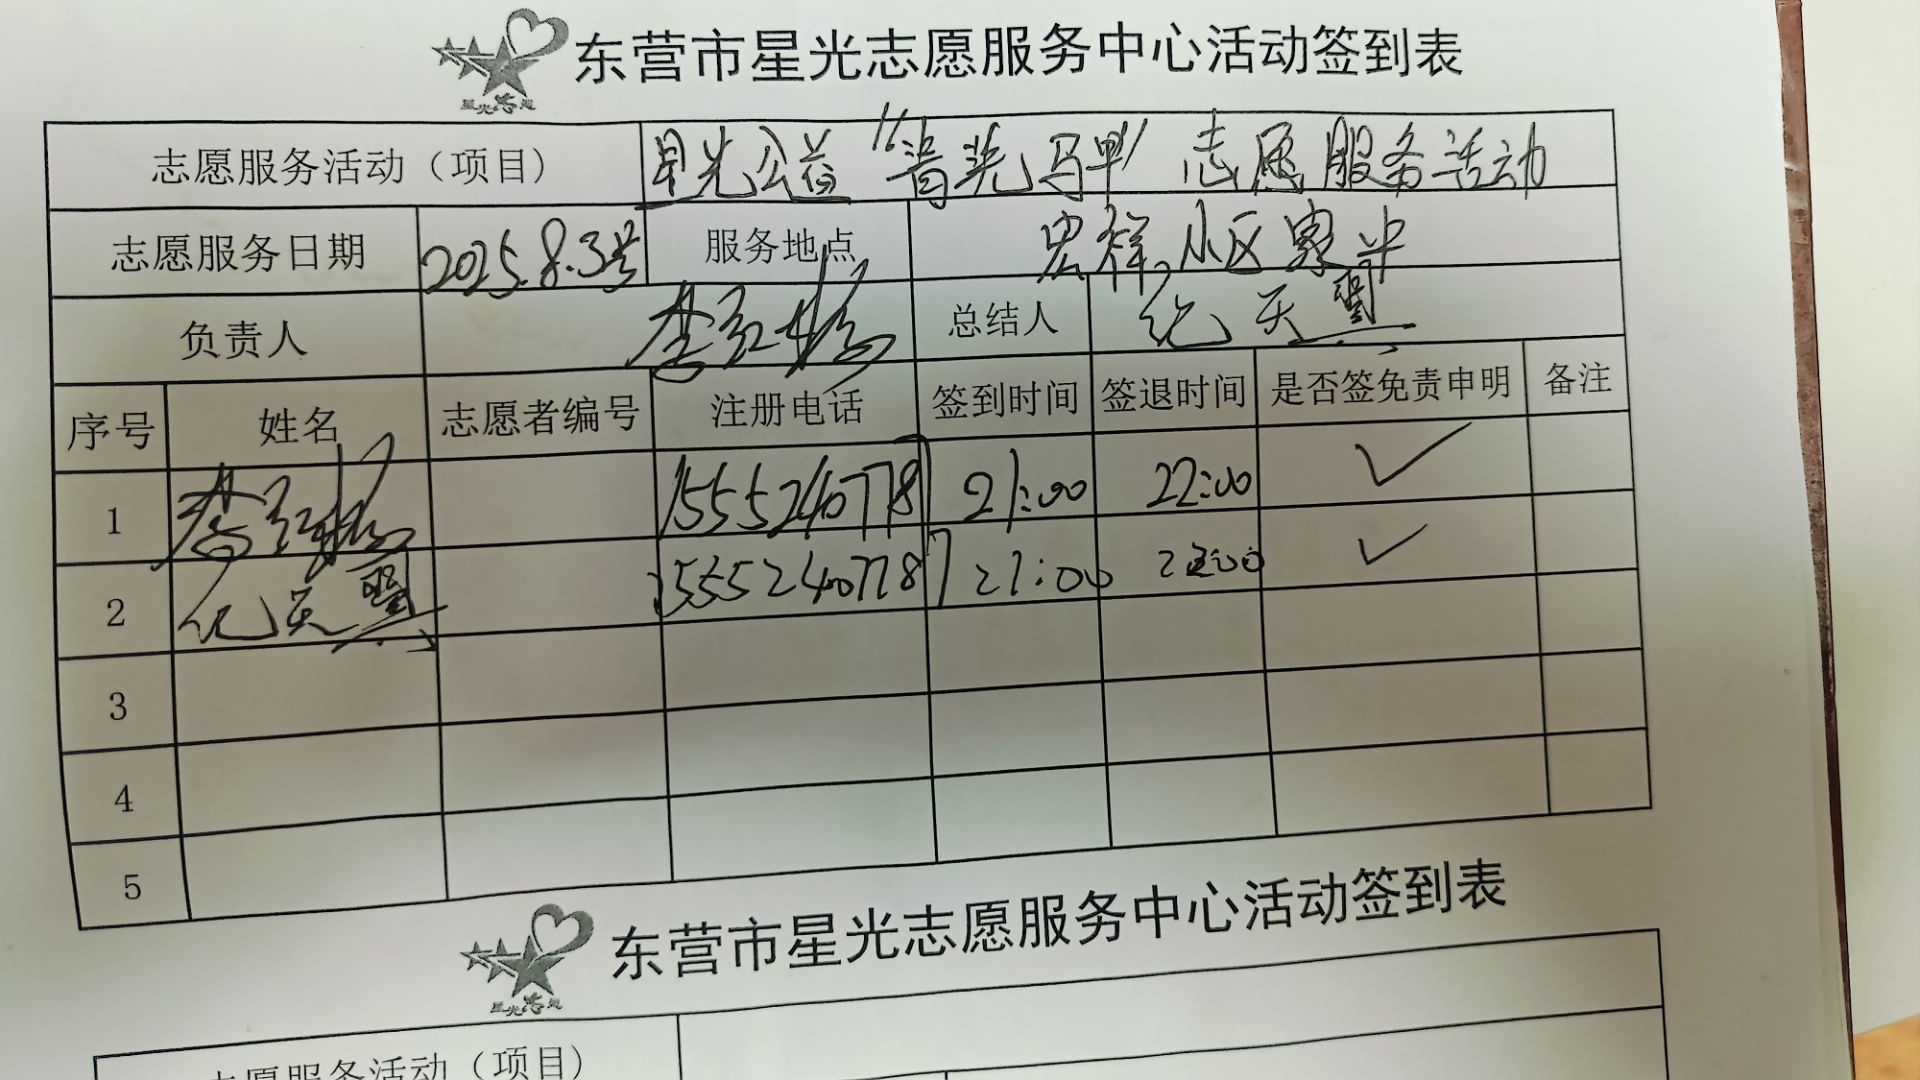 东营市星光志愿服务中心活动签到表
星光志愿
志愿服务活动（项目） 星光公益“清洗马甲”志愿服务活动
志愿服务日期 2025.8.3号 服务地点 宏祥小区家中
负责人 李红梅 总结人 纪天
序号 姓名 志愿者编号 注册电话 签到时间 签退时间 是否签免责申明 备注
1 李红梅 15552407781 21:00 22:00 ✓
2 纪天 15552407787 21:00 22:00 ✓
3
4
5
东营市星光志愿服务中心活动签到表
星光志愿
志愿服务活动（项目）